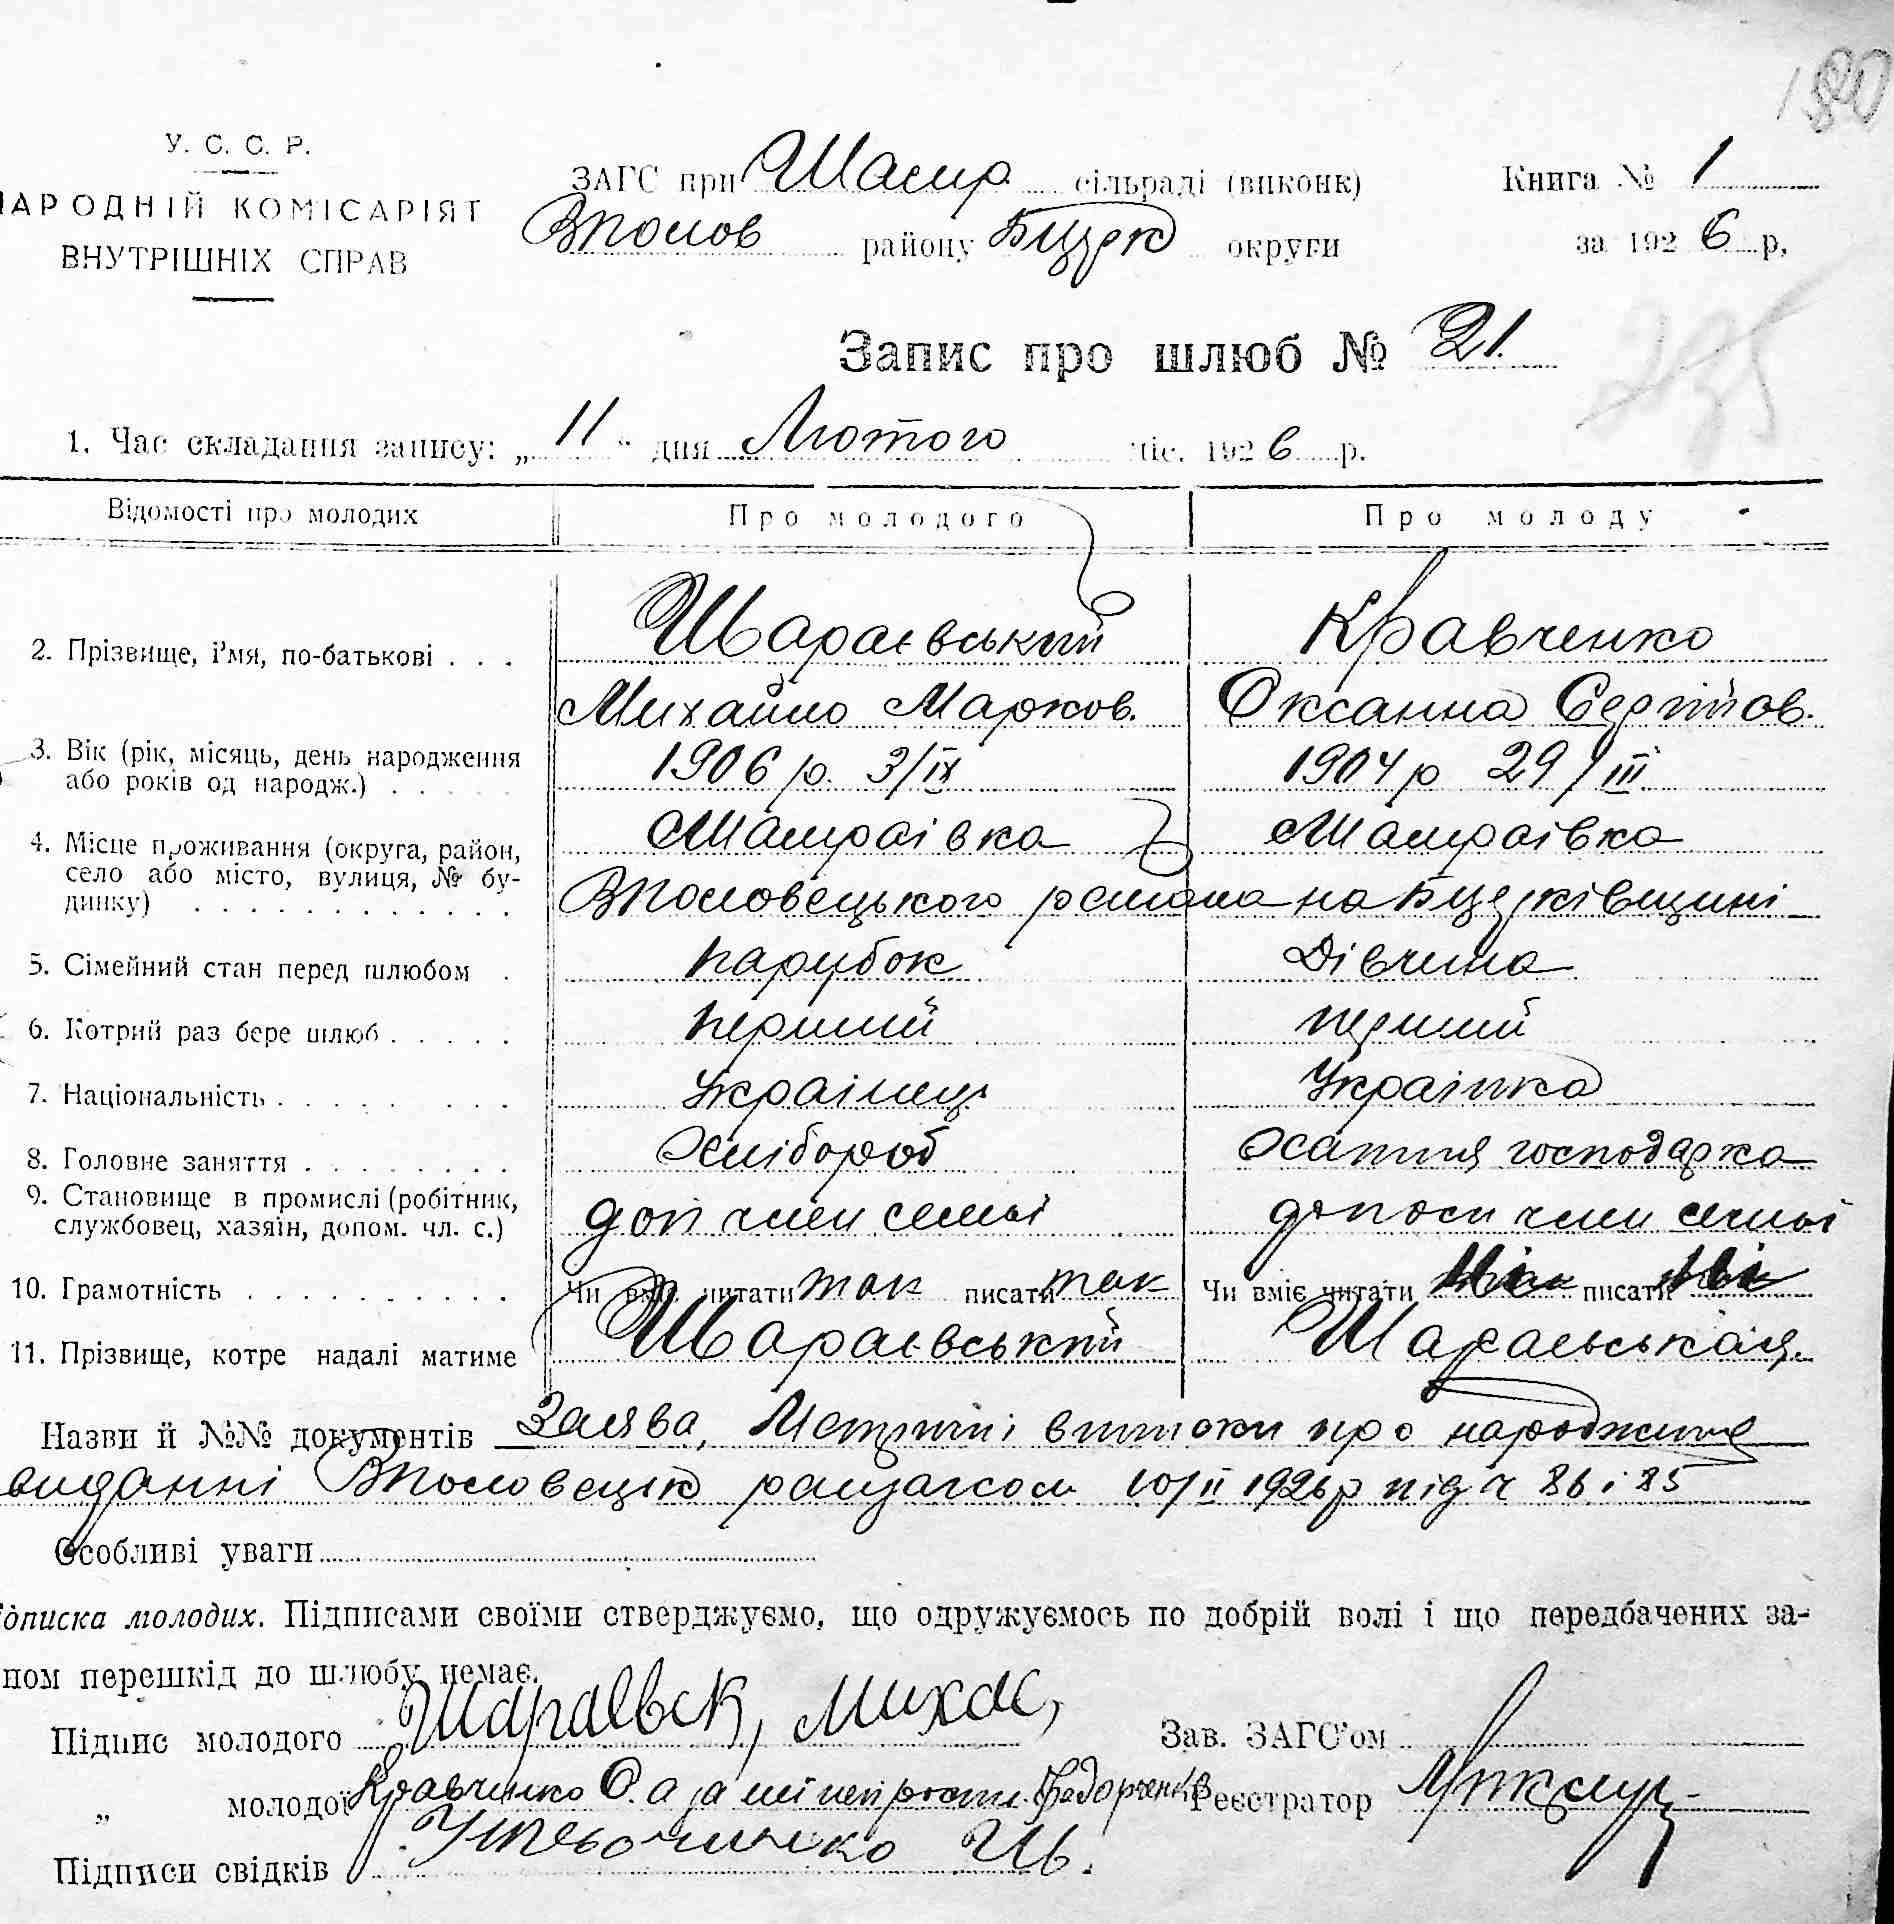 180
У. С. С. Р.
НАРОДНІЙ КОМІСАРІЯТ
ВНУТРІШНІХ СПРАВ
ЗАГС при Шамр. сільраді (виконк)
Книга № 1
району Бцерк округи
за 1926 р,
235
Запис про шлюб № 21.
1. Час складання запису: „11“ дня Лютого міс. 1926 р.
Відомості про молодих
Про молодого
Про молоду
2. Прізвище, і'мя, по-батькові . . .
Шараєвський
Кравченко
Михайло Марков.
Оксанна Сергійов.
3. Вік (рік, місяць, день народження або років од народж.) . . . . .
1906 р. 3/IX
1904 р 29/III
4. Місце проживання (округа, район, село або місто, вулиця, № будинку) . . . . . . . . . . . .
Шамраівка
Шамраівка
району на Бцерківщині
5. Сімейний стан перед шлюбом .
парубок
Дівчина
6. Котрий раз бере шлюб . . . . .
перший
перший
7. Національність . . . . . . . .
Українець
Українка
8. Головне заняття . . . . . . . .
Хлібороб
Хатня господарка
9. Становище в промислі (робітник, службовец, хазяїн, допом. чл. с.)
доп член семьі
допом член семьі
10. Грамотність . . . . . . . . . .
Чи вміє читати так писати так
Чи вміє читати Ні писати Ні
11. Прізвище, котре надалі матиме
Шараєвський
Шараєвськая.
Назви й №№ документів Заява, Метричні витоки про народження
виданні райзагсом 10/II 1926р під ч 86 і 85
Особливі уваги
Підписка молодих. Підписами своїми стверджуємо, що одружуємось по добрій волі і що передбачених за-
ном перешкід до шлюбу немає.
Підпис молодого Шараевск, Михаі,
Зав. ЗАГС'ом
„ молодої Кравченко О. а за неї неписьмен. Федорченко
Реєстратор
Підписи свідків